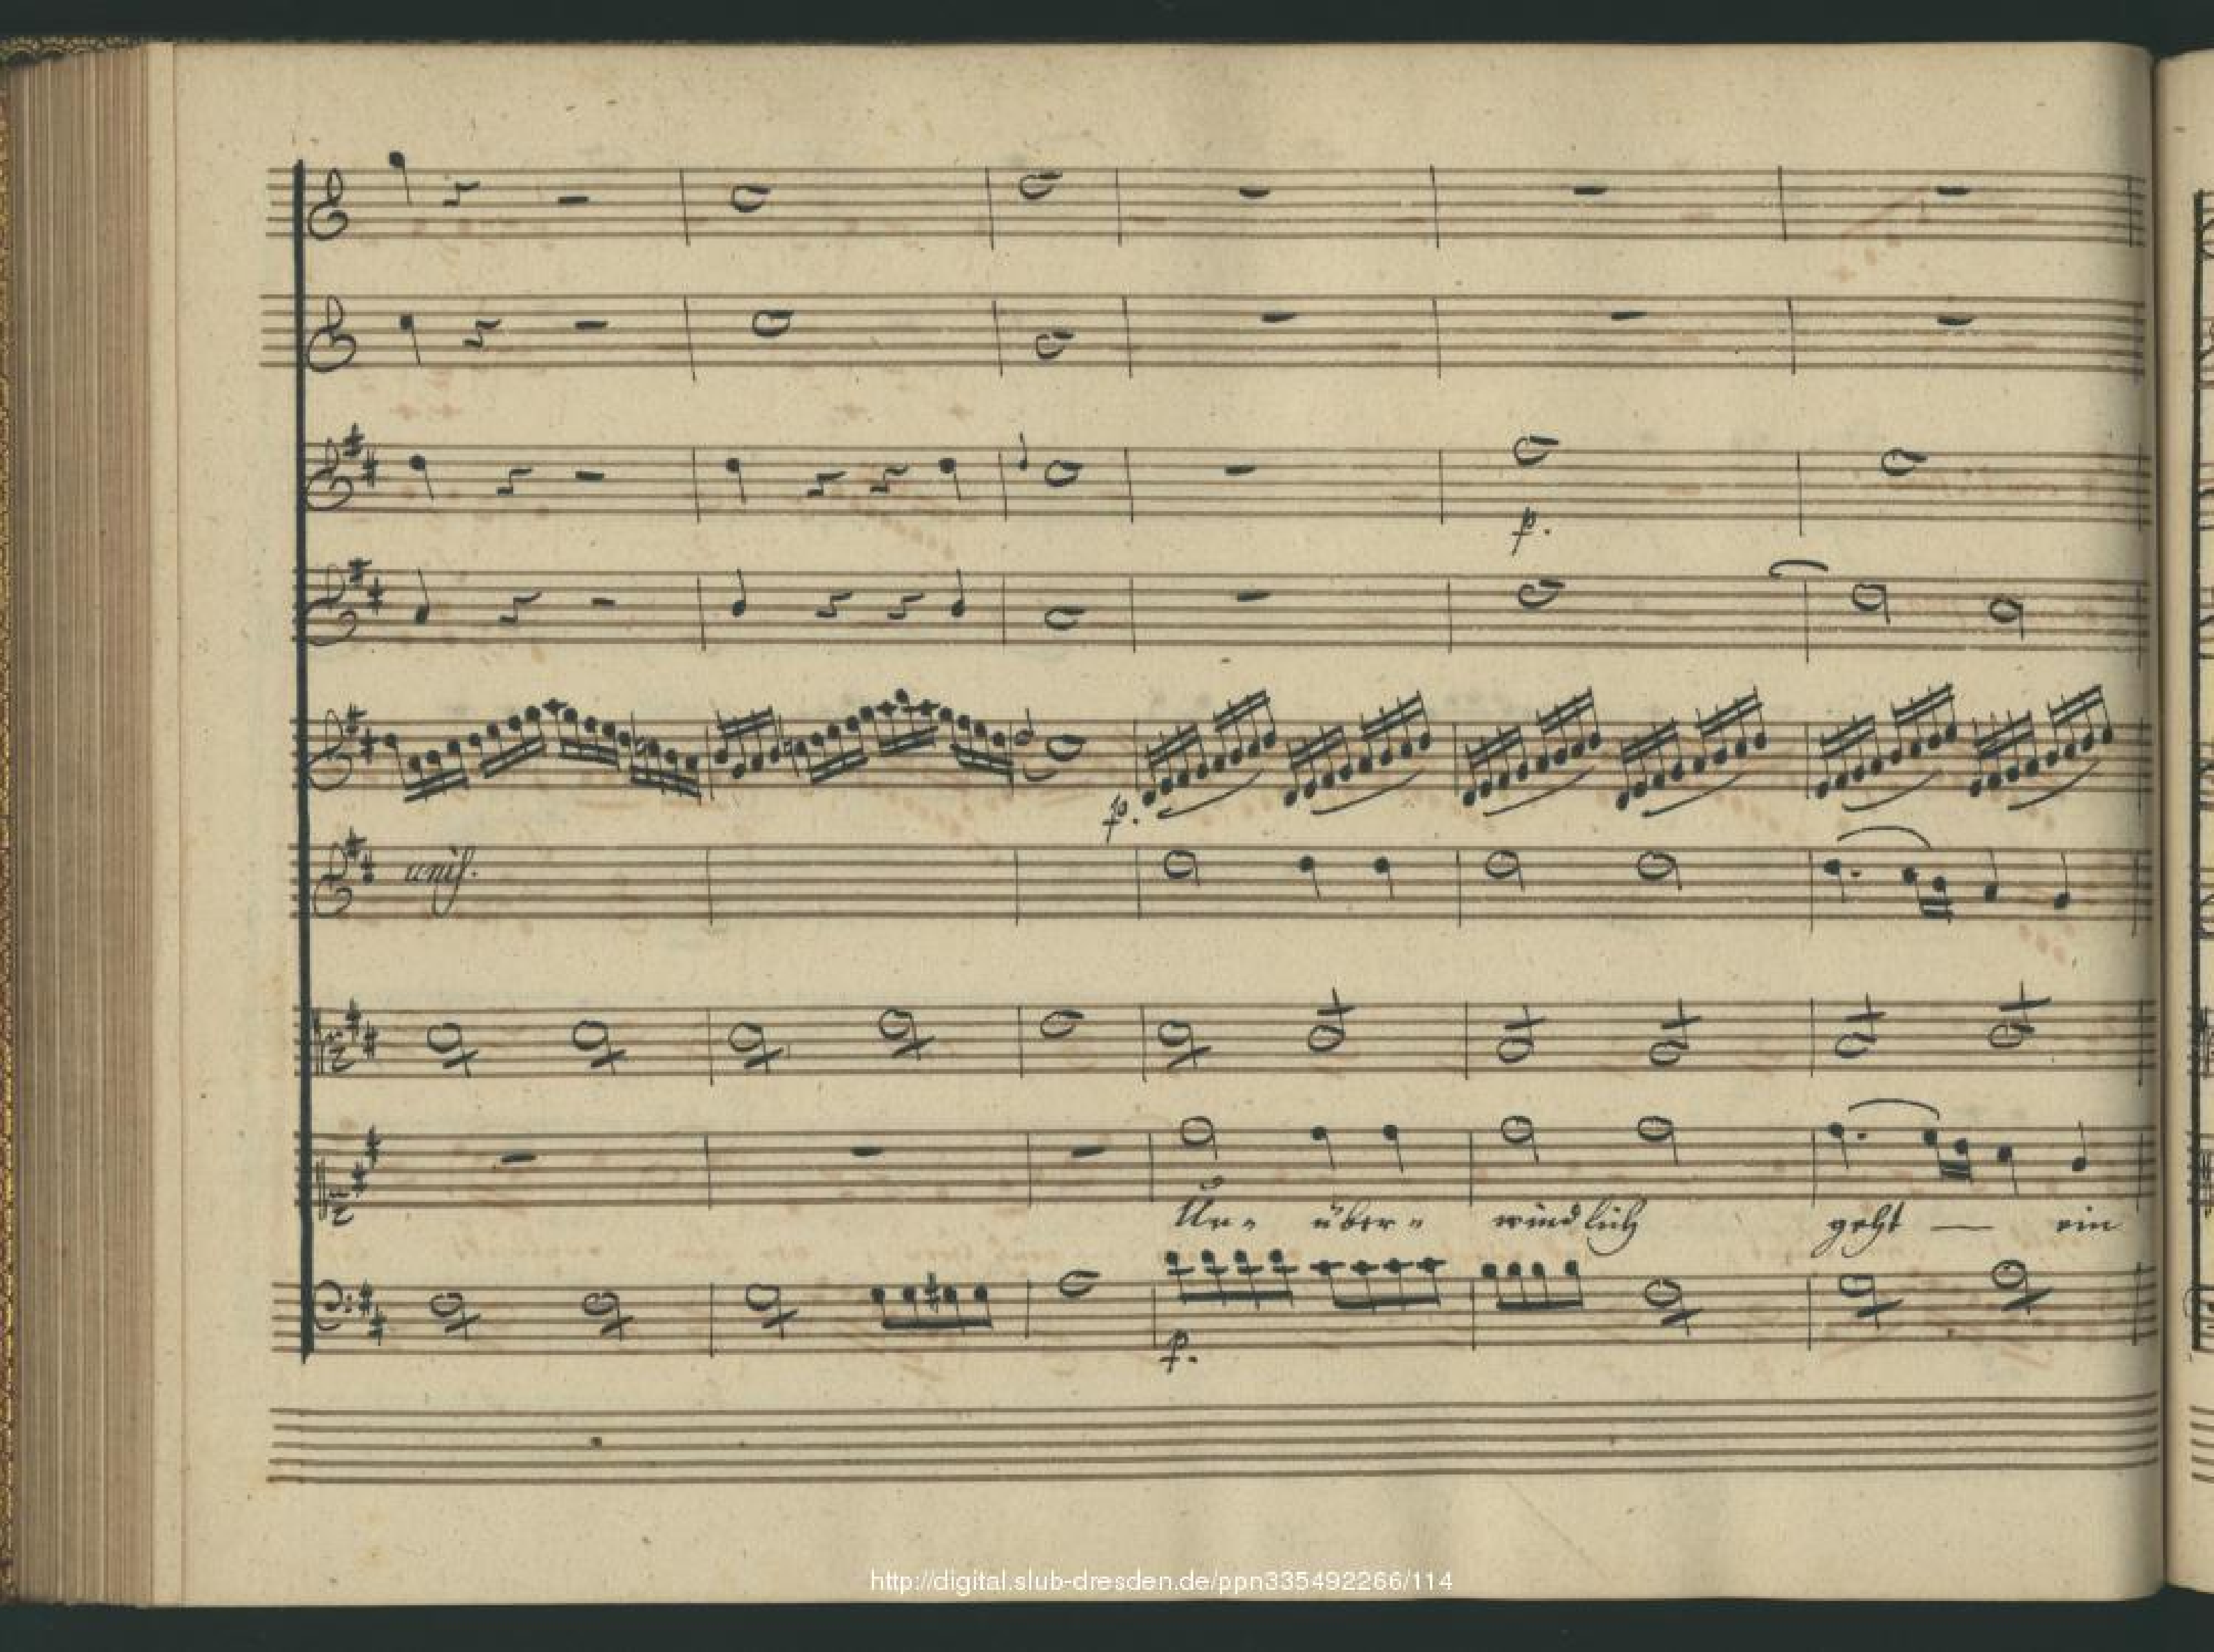 p.
p.
unis.
Un- über- windlich geht — ein
p.
http://digital.slub-dresden.de/ppn335492266/114